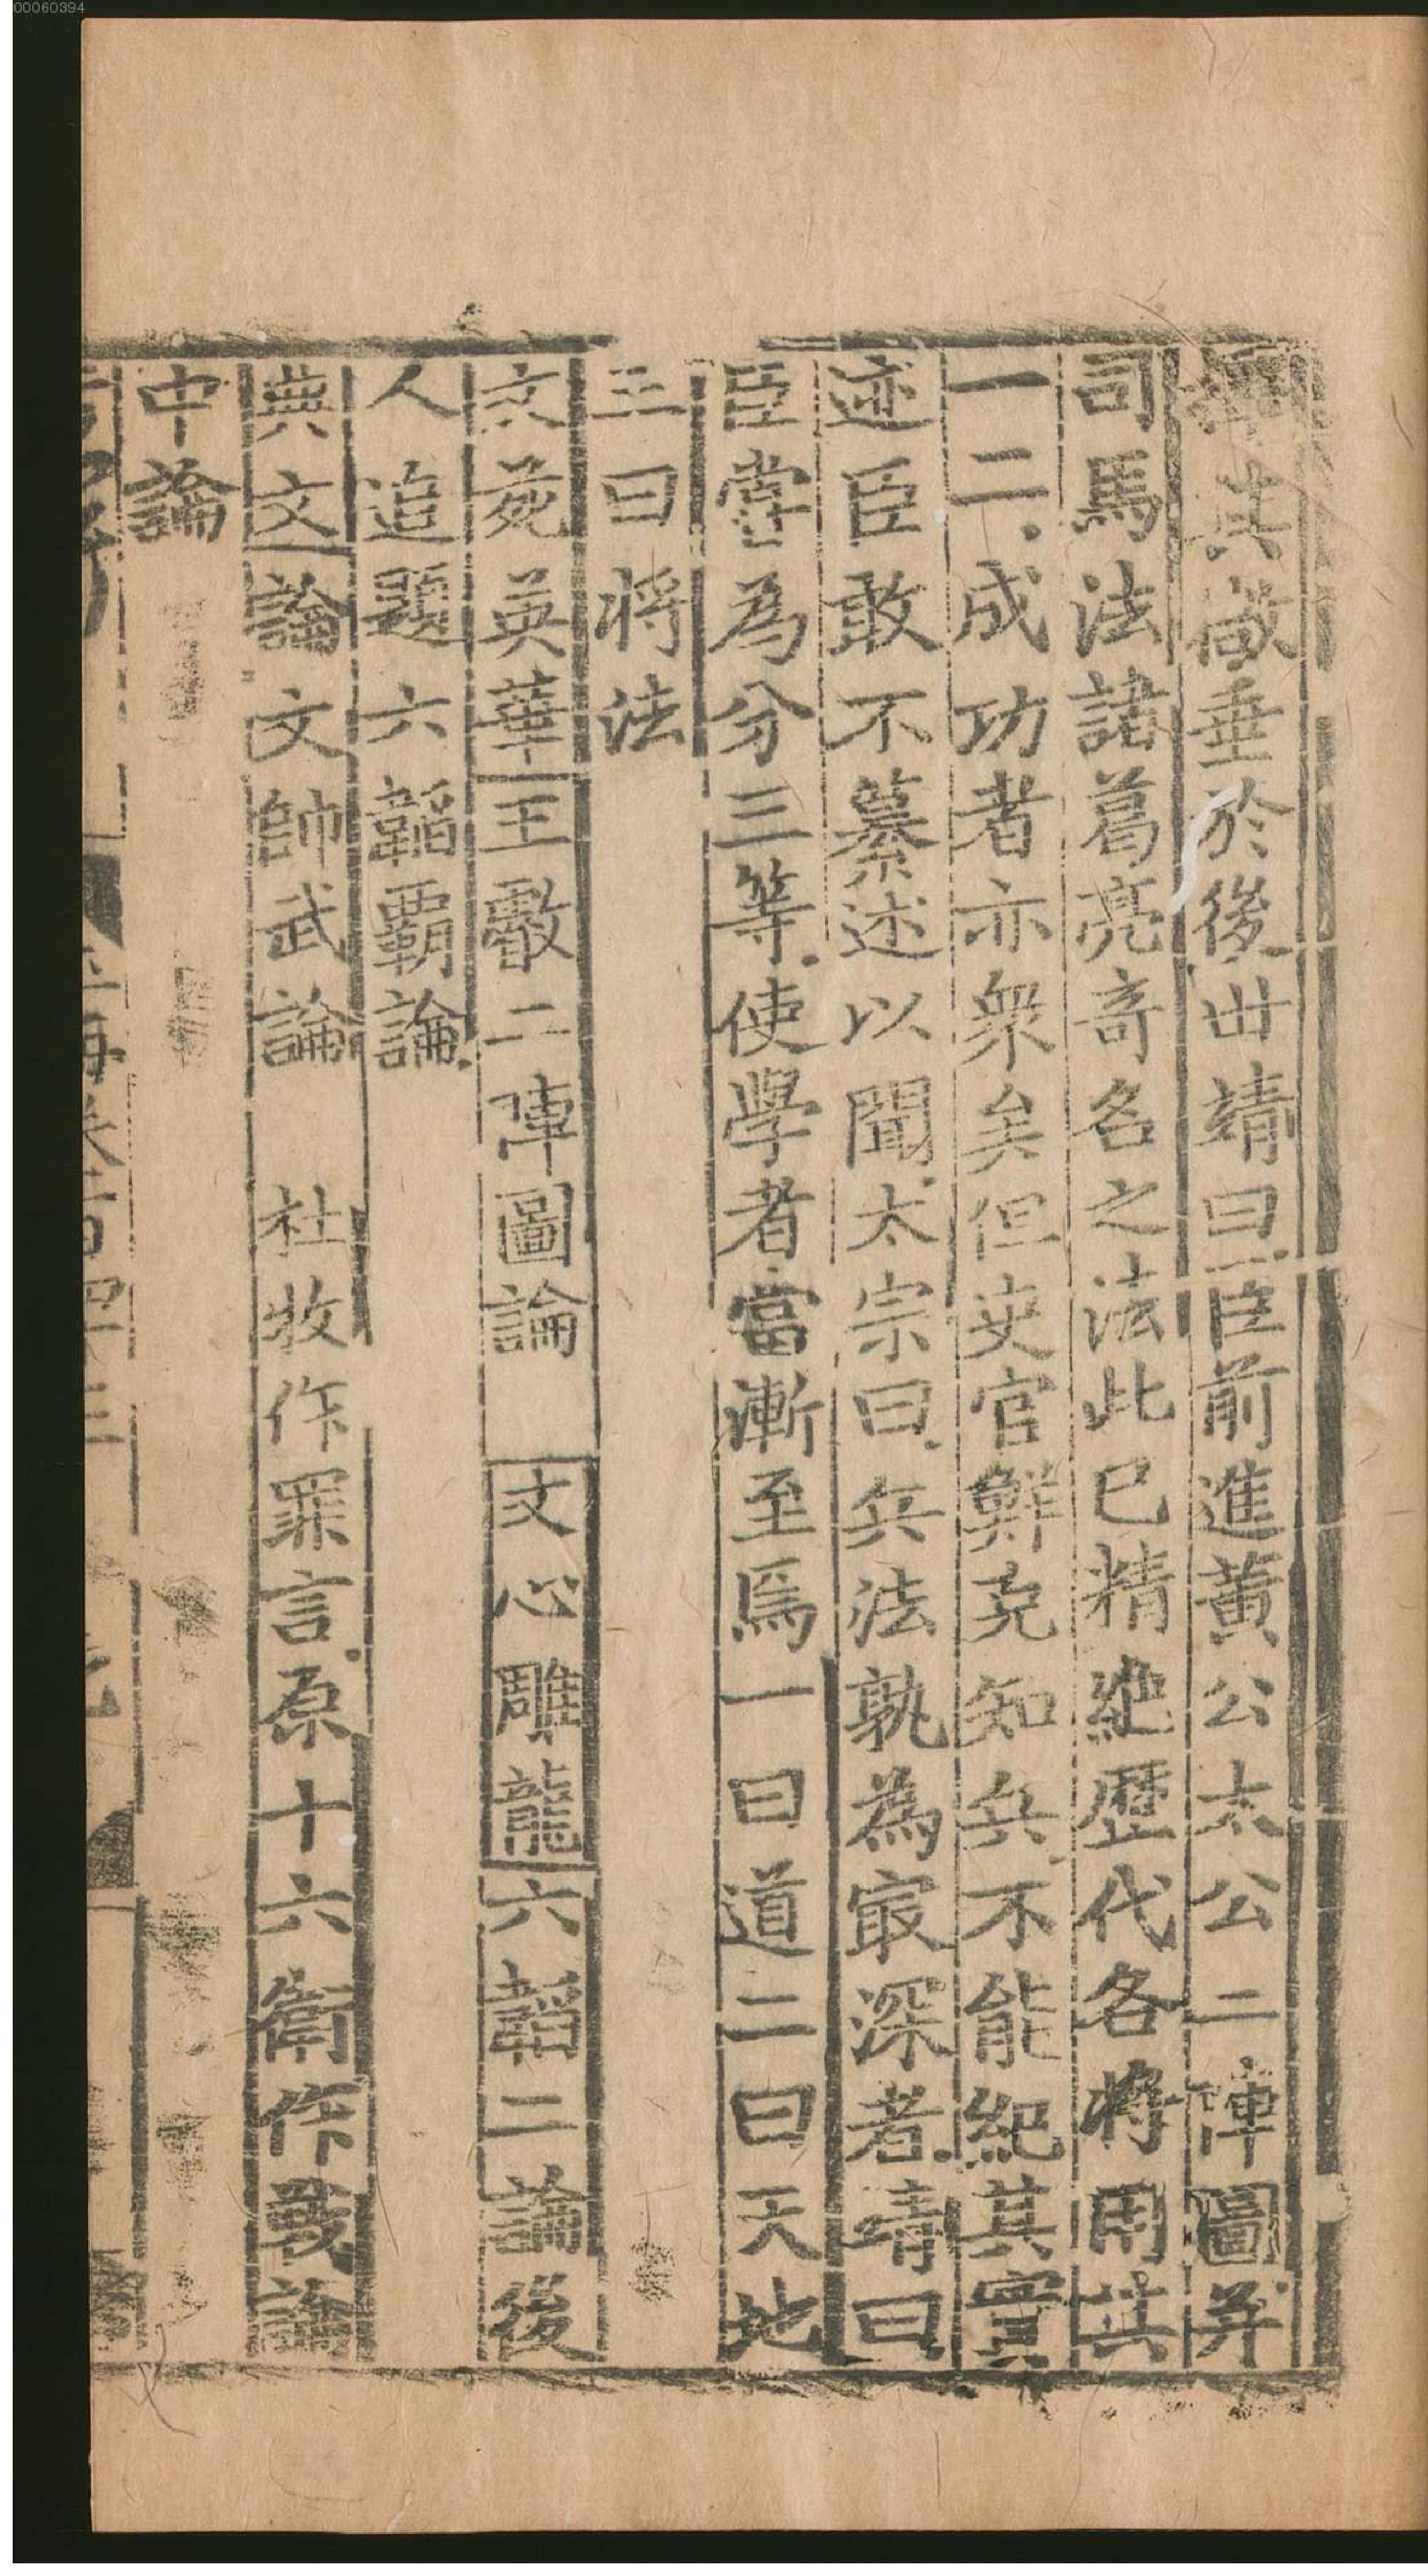 其箴垂於後世靖曰臣前進黄公太公二陣圖并
司馬法諸葛亮竒名之法此已精絶歴代各將用其
一二成功者亦衆矣但史官鮮克知兵不能紀其實
迹臣敢不纂述以聞太宗曰兵法孰為㝡深者靖曰
臣嘗為分三等使學者當漸至焉一曰道二曰天地
三曰将法
文苑英華王敷二陣圖論 文心雕龍六韜二論後
人追題六韜覇論
典文論文帥武論 杜牧作罪言原十六衛作戰論
中論
00060394